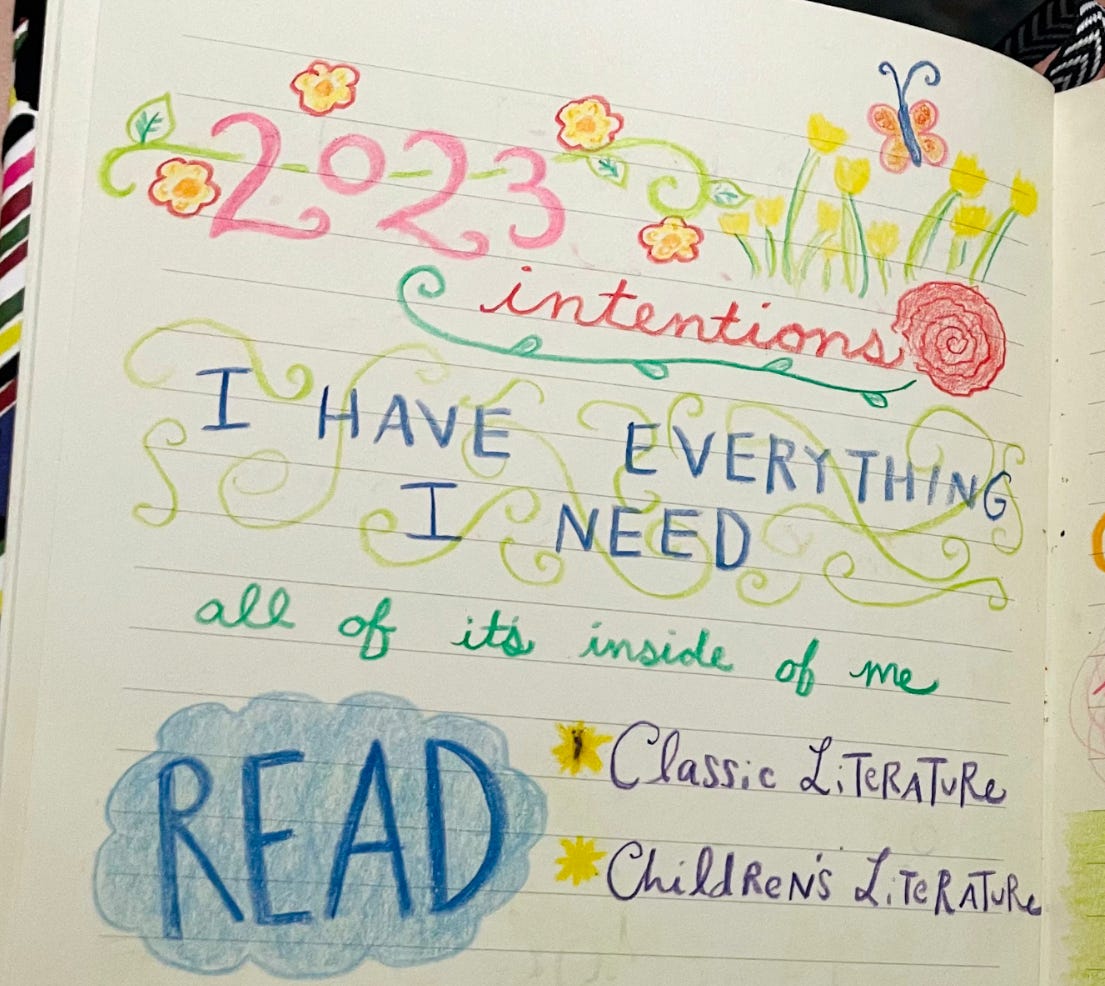 2023
intentions
I HAVE EVERYTHING
I NEED
all of it's inside of me
READ
Classic LiTeRATuRe
ChildReN's LiTeRATuRe